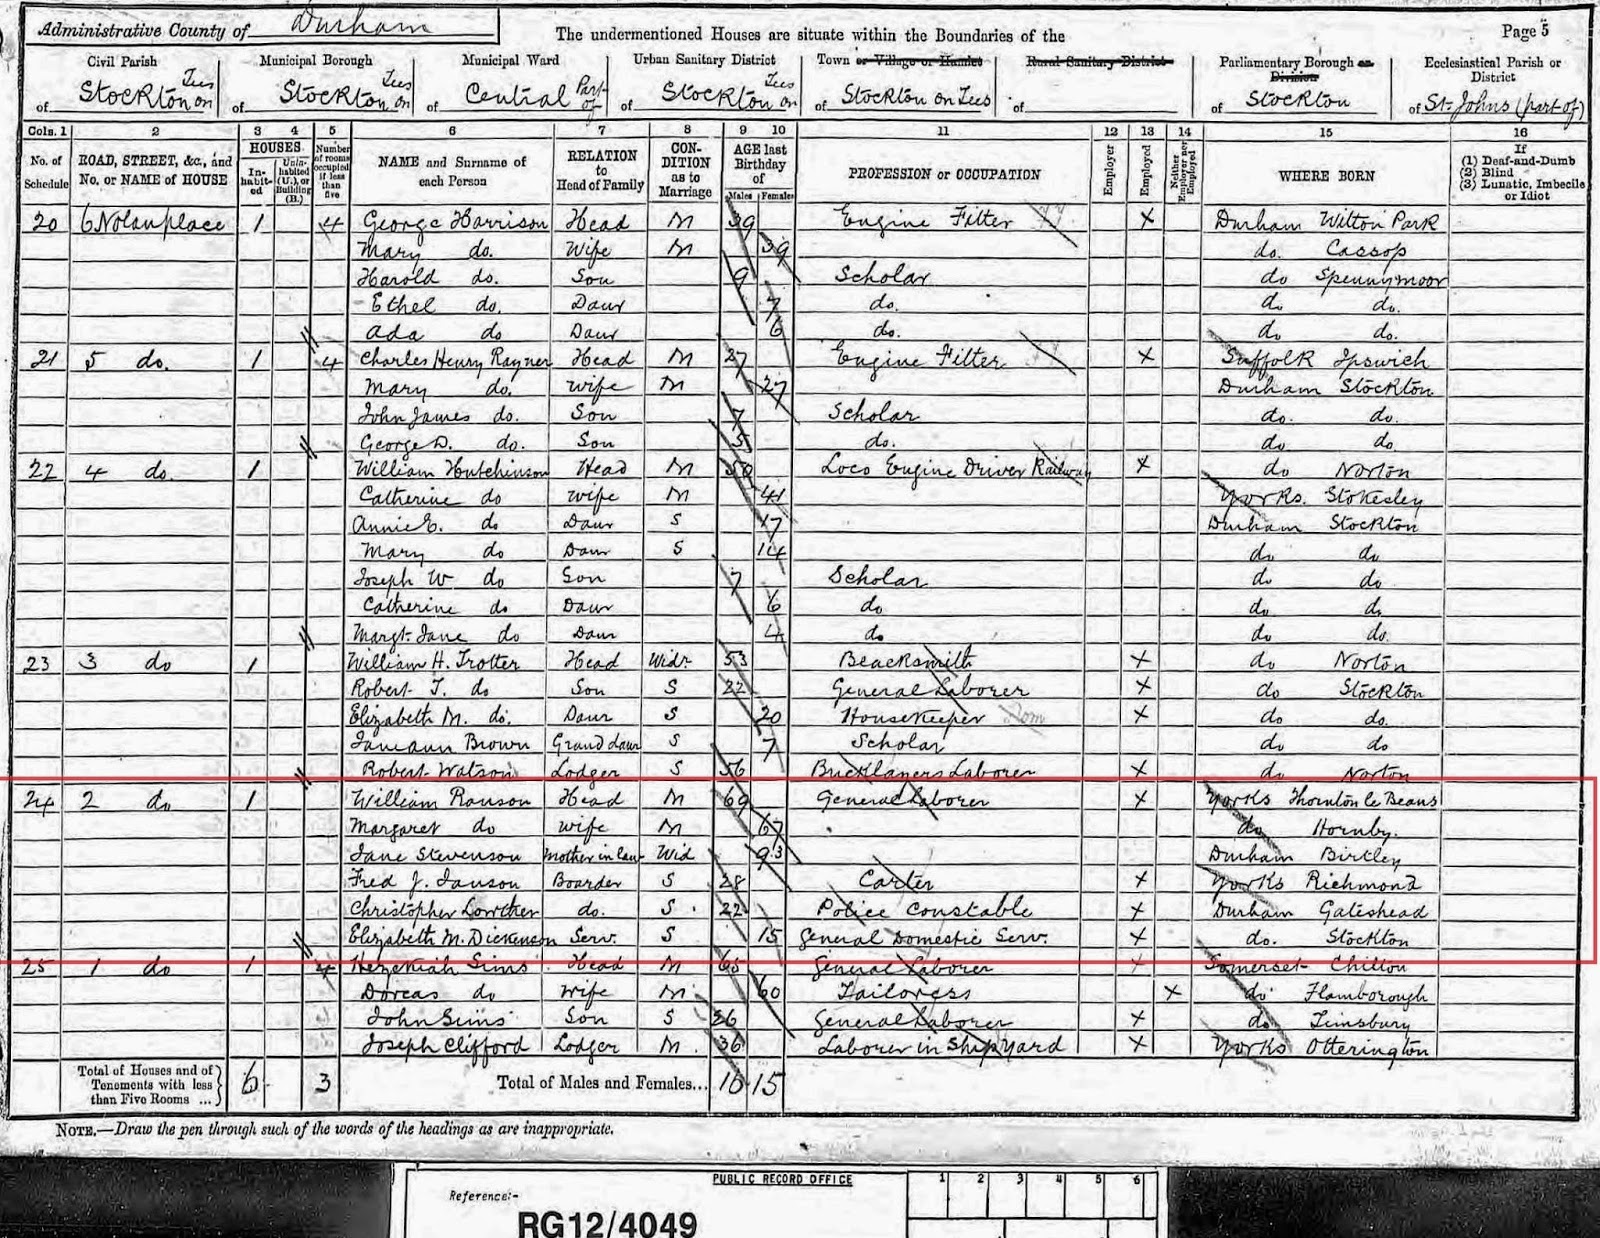 Administrative County of Durham
The undermentioned Houses are situate within the Boundaries of the
Page 5
Civil Parish of Stockton on Tees
Municipal Borough of Stockton on Tees
Municipal Ward of Central Part of
Urban Sanitary District of Stockton on Tees
Town or Village or Hamlet of Stockton on Tees
Rural Sanitary District of
Parliamentary Borough or Division of Stockton
Ecclesiastical Parish or District of St Johns (part of)
Cols. 1 2 3 4 5 6 7 8 9 10 11 12 13 14 15 16
No. of Schedule
ROAD, STREET, &c., and No. or NAME of HOUSE
HOUSES
In-habit-ed
Unin-habited (U.), or Building (B.)
Number of rooms occupied if less than five
NAME and Surname of each Person
RELATION to Head of Family
CON-DITION as to Marriage
AGE last Birthday of
Males Females
PROFESSION or OCCUPATION
Employer
Employed
Neither Employer nor Employed
WHERE BORN
If
(1) Deaf-and-Dumb
(2) Blind
(3) Lunatic, Imbecile or Idiot
20 6 Nolan place 1 4 George Harrison Head M 39 Engine Fitter X Durham Wilton Park
Mary do. Wife M 39 do. Cassop
Harold do. Son 9 Scholar do Spennymoor
Ethel do. Daur 7 do. do do.
Ada do Daur 6 do. do do.
21 5 do. 1 4 Charles Henry Rayner Head M 27 Engine Fitter X Suffolk Ipswich
Mary do. wife M 27 Durham Stockton
John James do. Son 7 Scholar do. do.
George D. do. Son 5 do. do do
22 4 do. 1 William Hutchinson Head M 50 Loco Engine Driver Railway X do Norton
Catherine do wife M 41 Yorks. Stokesley
Annie E. do Daur S 17 Durham Stockton
Mary do Daur S 14 do do
Joseph W do Son 7 Scholar do do
Catherine do Daur 6 do do do
Margt. Jane do Daur 4 do do do.
23 3 do 1 William H. Trotter Head Widr 53 Blacksmith X do Norton
Robert T. do Son S 22 General Laborer X do Stockton
Elizabeth M. do. Daur S 20 Housekeeper Dom X do do.
Brown Grand daur S 7 Scholar do do
Robert Watson Lodger S 56 Bricklayers Laborer X do Norton
24 2 do 1 William Ranson Head M 69 General Laborer X Yorks Thornton le Beans
Margaret do wife M 67 do Hornby.
Jane Stevenson Mother in law Wid 93 Durham Birtley
Fred J. Janson Boarder S 28 Carter X Yorks Richmond
Christopher Lowther do. S 22 Police Constable X Durham Gateshead
Elizabeth M. Dickenson Serv. S 15 General Domestic Serv. X do. Stockton
25 1 do 1 4 Hezekiah Sims Head M 65 General Laborer X Somerset Chilton
Dorcas do wife M 60 Tailoress X do Flamborough
John Sims Son S 26 General Laborer X do Timsbury
Joseph Clifford Lodger M 36 Laborer in Ship Yard X Yorks Otterington
Total of Houses and of Tenements with less than Five Rooms ... 6 3 Total of Males and Females... 16 15
NOTE.—Draw the pen through such of the words of the headings as are inappropriate.
PUBLIC RECORD OFFICE
1 2 3 4 5 6
Reference:-
RG12/4049